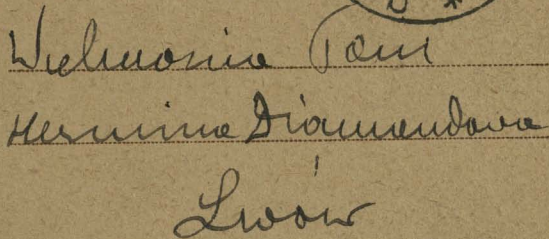 Wielmożna Pani
Hermina Diamandowa
Lwów